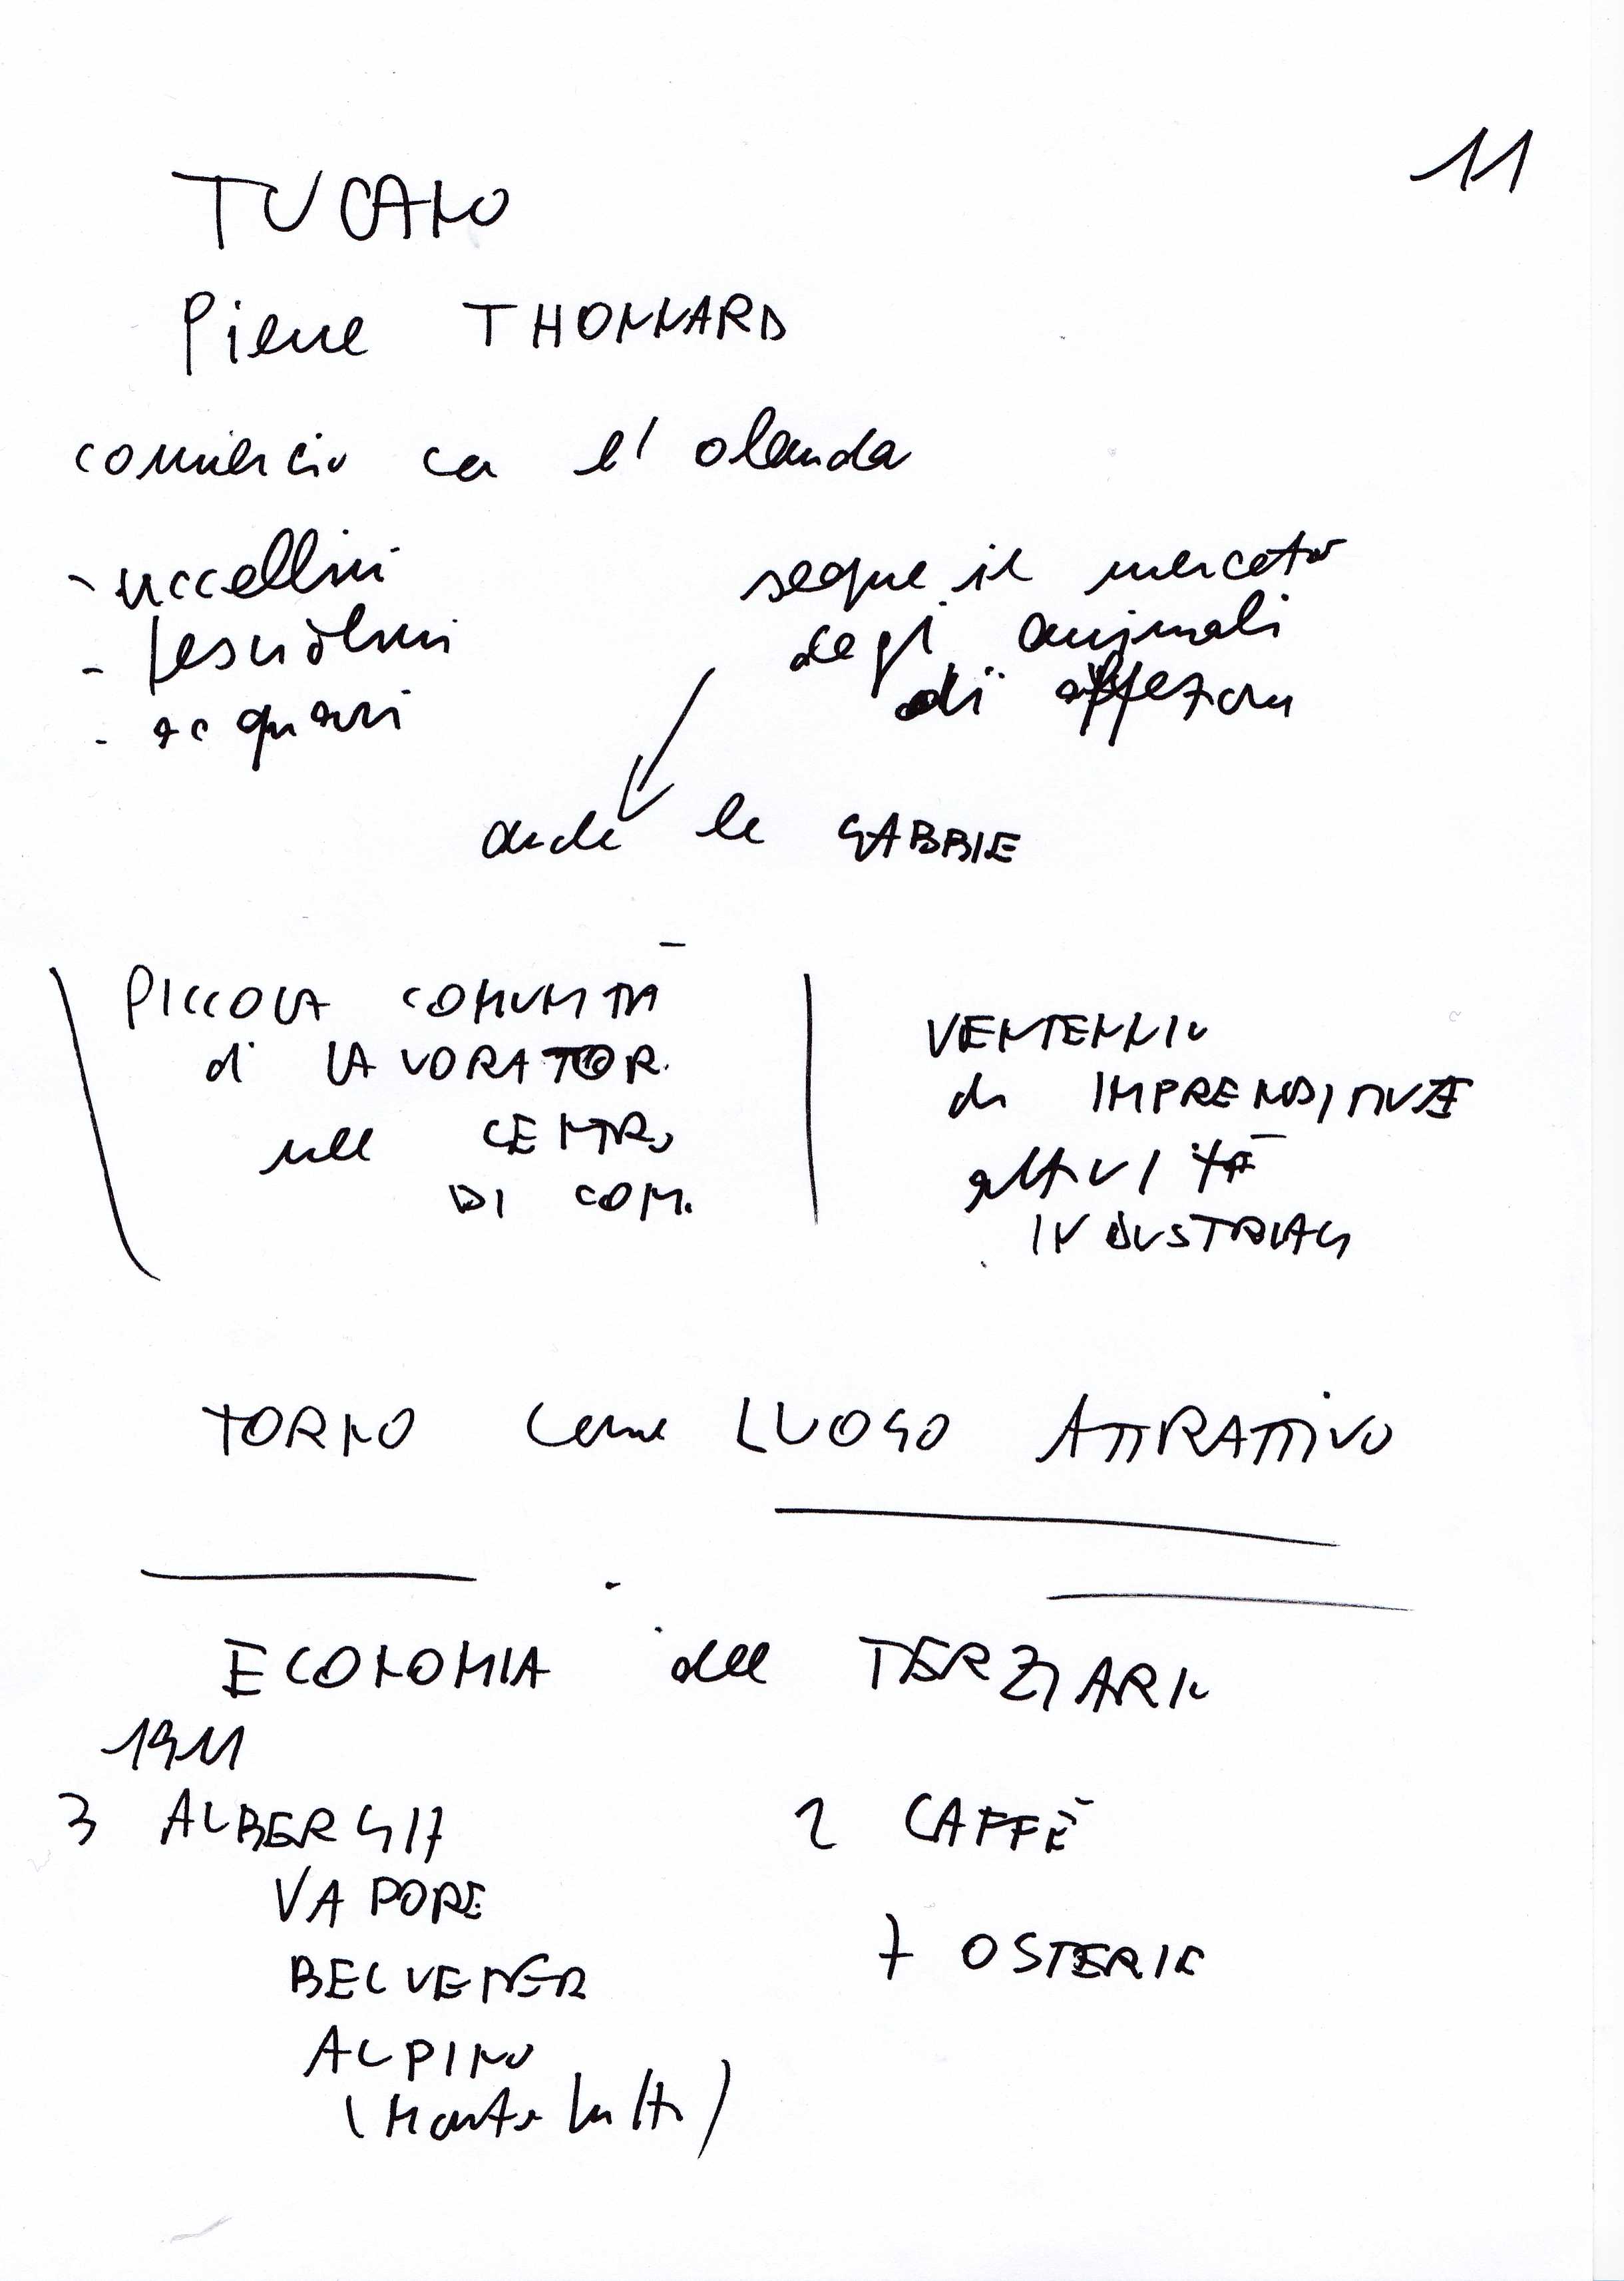 11
TUCANO
Pierre THONNARD
commercio con l'olanda
- uccellini
- pesciolini
- acquari
segue il mercato
degli animali
di affezione
anche le GABBIE
PICCOLA COMUNITÀ
di LAVORATOR.
nel CENTRO
DI COM.
VENTENNIO
di IMPRENDITIVE
attività
INDUSTRIALI
TORNO come LUOGO ATTRATTIVO
ECONOMIA del TERZIARIO
1911
3 ALBERGHI
VAPORE
BELVEDER
ALPINO
(Monte
2 CAFFÈ
7 OSTERIE